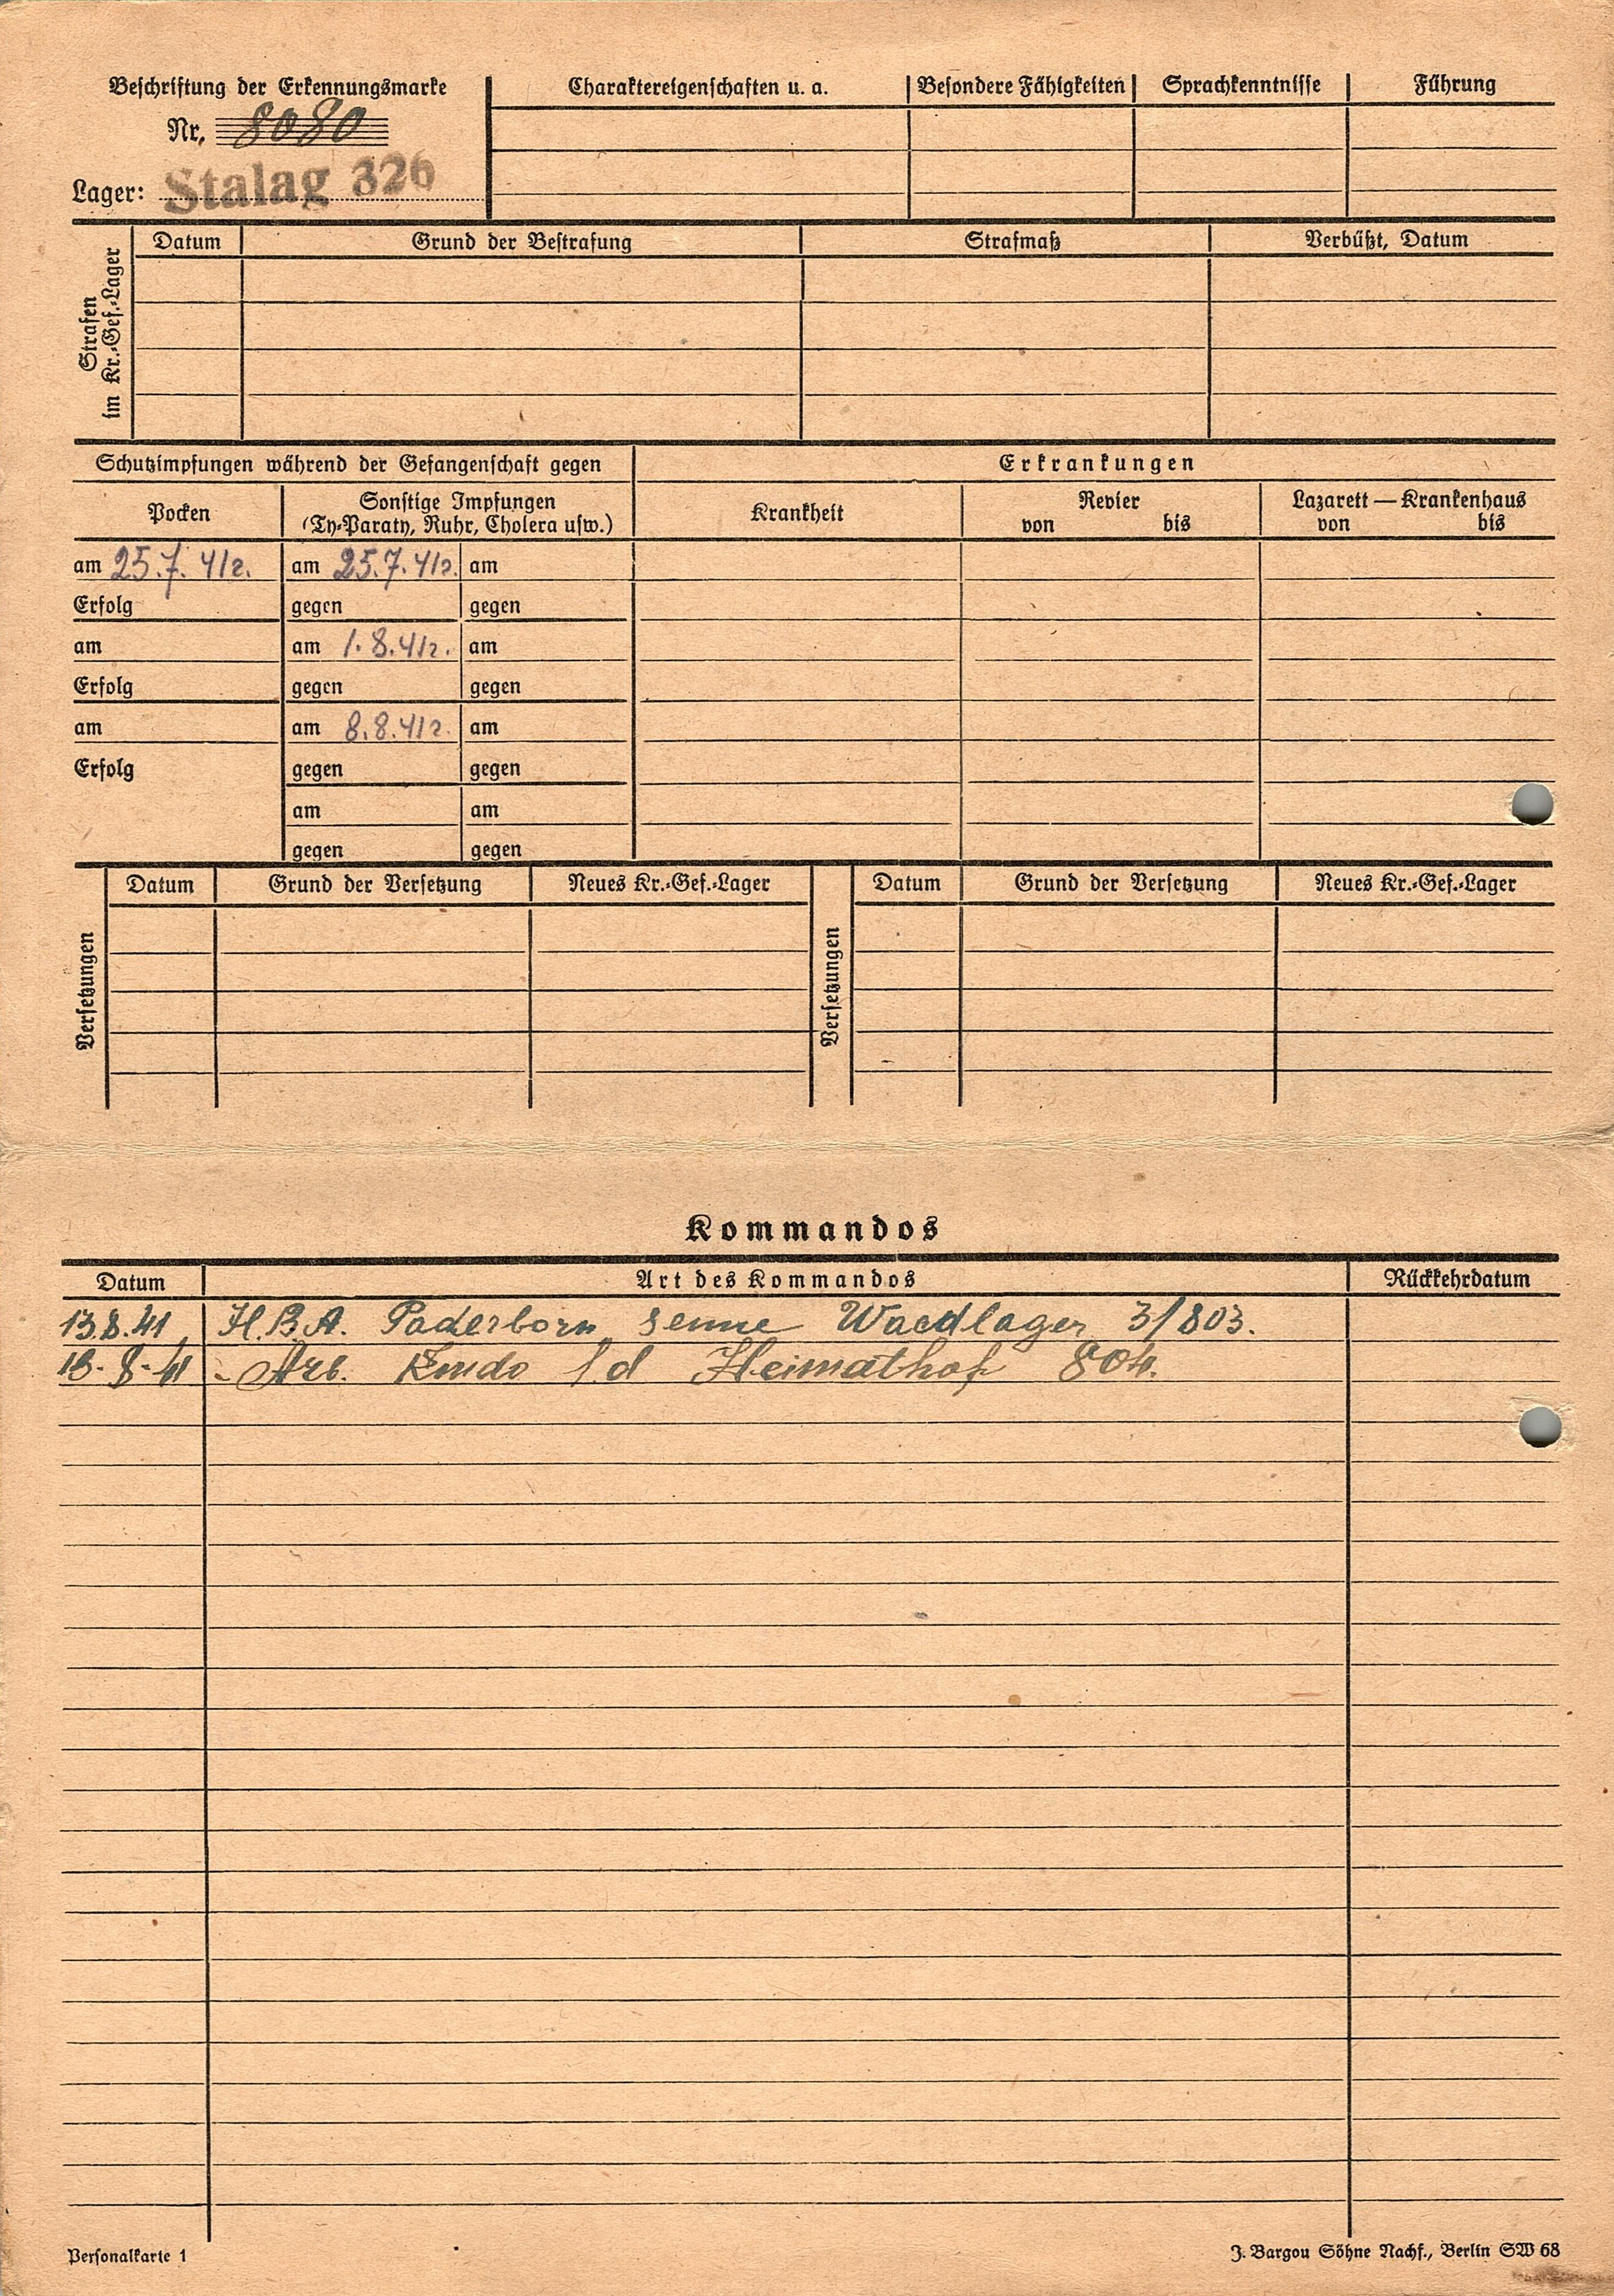 Beschriftung der Erkennungsmarke
Nr. 8080
Lager: Stalag 326
Charaktereigenschaften u. a. Besondere Fähigkeiten Sprachkenntnisse Führung
Strafen im Kr.-Gef.-Lager
Datum Grund der Bestrafung Strafmaß Verbüßt, Datum
Schutzimpfungen während der Gefangenschaft gegen Erkrankungen
Pocken Sonstige Impfungen Krankheit Revier Lazarett — Krankenhaus
(Ty-Paraty, Ruhr, Cholera usw.) von bis von bis
am 25.7.41г. am 25.7.41г. am
Erfolg gegen gegen
am am 1.8.41г. am
Erfolg gegen gegen
am am 8.8.41г. am
Erfolg gegen gegen
am am
gegen gegen
Versetzungen
Datum Grund der Versetzung Neues Kr.-Gef.-Lager
Versetzungen
Datum Grund der Versetzung Neues Kr.-Gef.-Lager
Kommandos
Datum Art des Kommandos Rückkehrdatum
13.8.41, H.B.A. Paderborn Senne Waldlager 3/803.
18-8-41 - Arb. Kmdo Heimathof 804.
Personalkarte 1
J. Bargou Söhne Nachf., Berlin SW 68